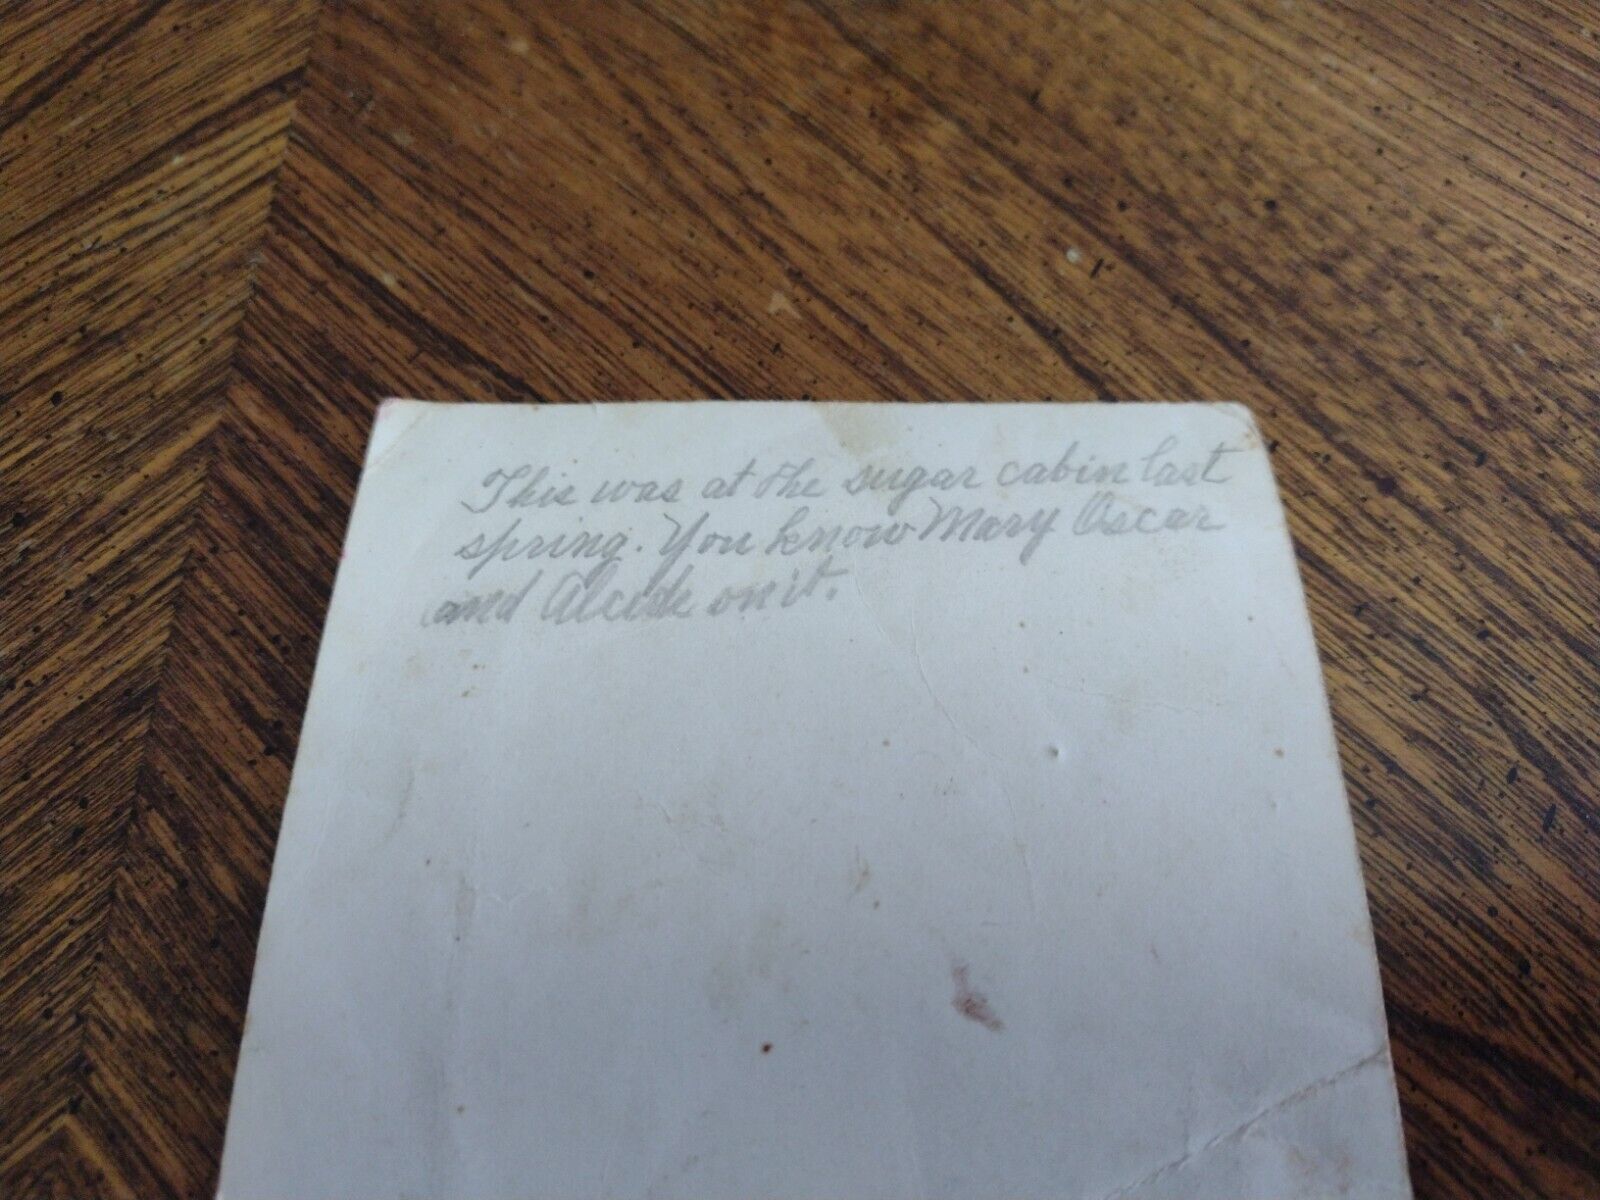 This was at the sugar cabin last
spring. You know Mary Oscar
and Alcide on it.